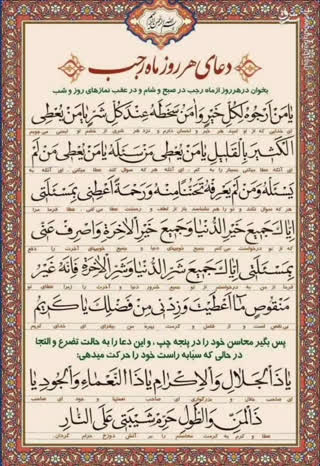 بسم الله الرحمن الرحیم
دعای هر روز ماه رجب
بخوان در هر روز از ماه رجب در صبح و شام و در عقب نمازهای روز و شب
یا مَنْ اَرْجُوهُ لِکُلِّ خَیْرٍ وَ امَنُ سَخَطَهُ عِنْدَ کُلِّ شَرٍّ یا مَنْ یُعْطِی
ای خدایی که از او امید هر خیر و احسان دارم و نزد هر شری از خشم او ایمنی می جویم
الْکَثیرَ بِالْقَلیلِ یا مَنْ یُعْطی مَنْ سَئَلَهُ یا مَنْ یُعْطی مَنْ لَمْ
یَسْئَلْهُ وَ مَنْ لَمْ یَعْرِفْهُ تَحَنُّناً مِنْهُ وَ رَحْمَةً اَعْطِنی بِمَسْئَلَتی
اِیّاکَ جَمیعَ خَیْرِ الدُّنْیا وَ جَمیعَ خَیْرِ الْاخِرَةِ وَ اصْرِفْ عَنّی
بِمَسْئَلَتی اِیّاکَ جَمیعَ شَرِّ الدُّنْیا وَ شَرِّ الْاخِرَةِ فَاِنَّهُ غَیْرُ
مَنْقُوصٍ ما اَعْطَیْتَ وَ زِدْنی مِنْ فَضْلِکَ یا کَریمُ
پس بگیر محاسن خود را در پنجه چپ، و این دعا را به حالت تضرع و التجا
در حالی که سبّابه راست خود را حرکت میدهی:
یا ذَا الْجَلالِ وَ الْاِکْرامِ یا ذَا النَّعْماءِ وَ الْجُودِ یا
ذَا الْمَنِّ وَ الطَّوْلِ حَرِّمْ شَیْبَتی عَلَی النّارِ